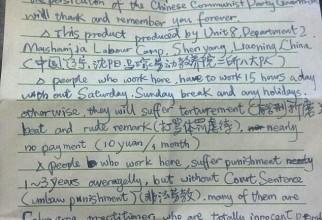 the persecution of the Chinese Communist Party Government
will thank and remember you forever.
△ This product produced by Unit 8, Department 2,
Mayshanjia Labour Camp, Shen yang, Liaoning, China
(中国, 辽宁, 沈阳, 马三家劳动教养院二所八大队)
△ people who work here, have to work 15 hours a day
with out Saturday, Sunday break and any holidays,
otherwise, they will suffer torturement (
beat and rude remark (打骂体罚虐待), nearly
no payment (10 yuan / month)
△ people who work here, suffer punishment
1~3 years averagelly, but without Court Sentence
(unlaw punishment) (非法劳教). many of them are
practitioner, who are totally innocent